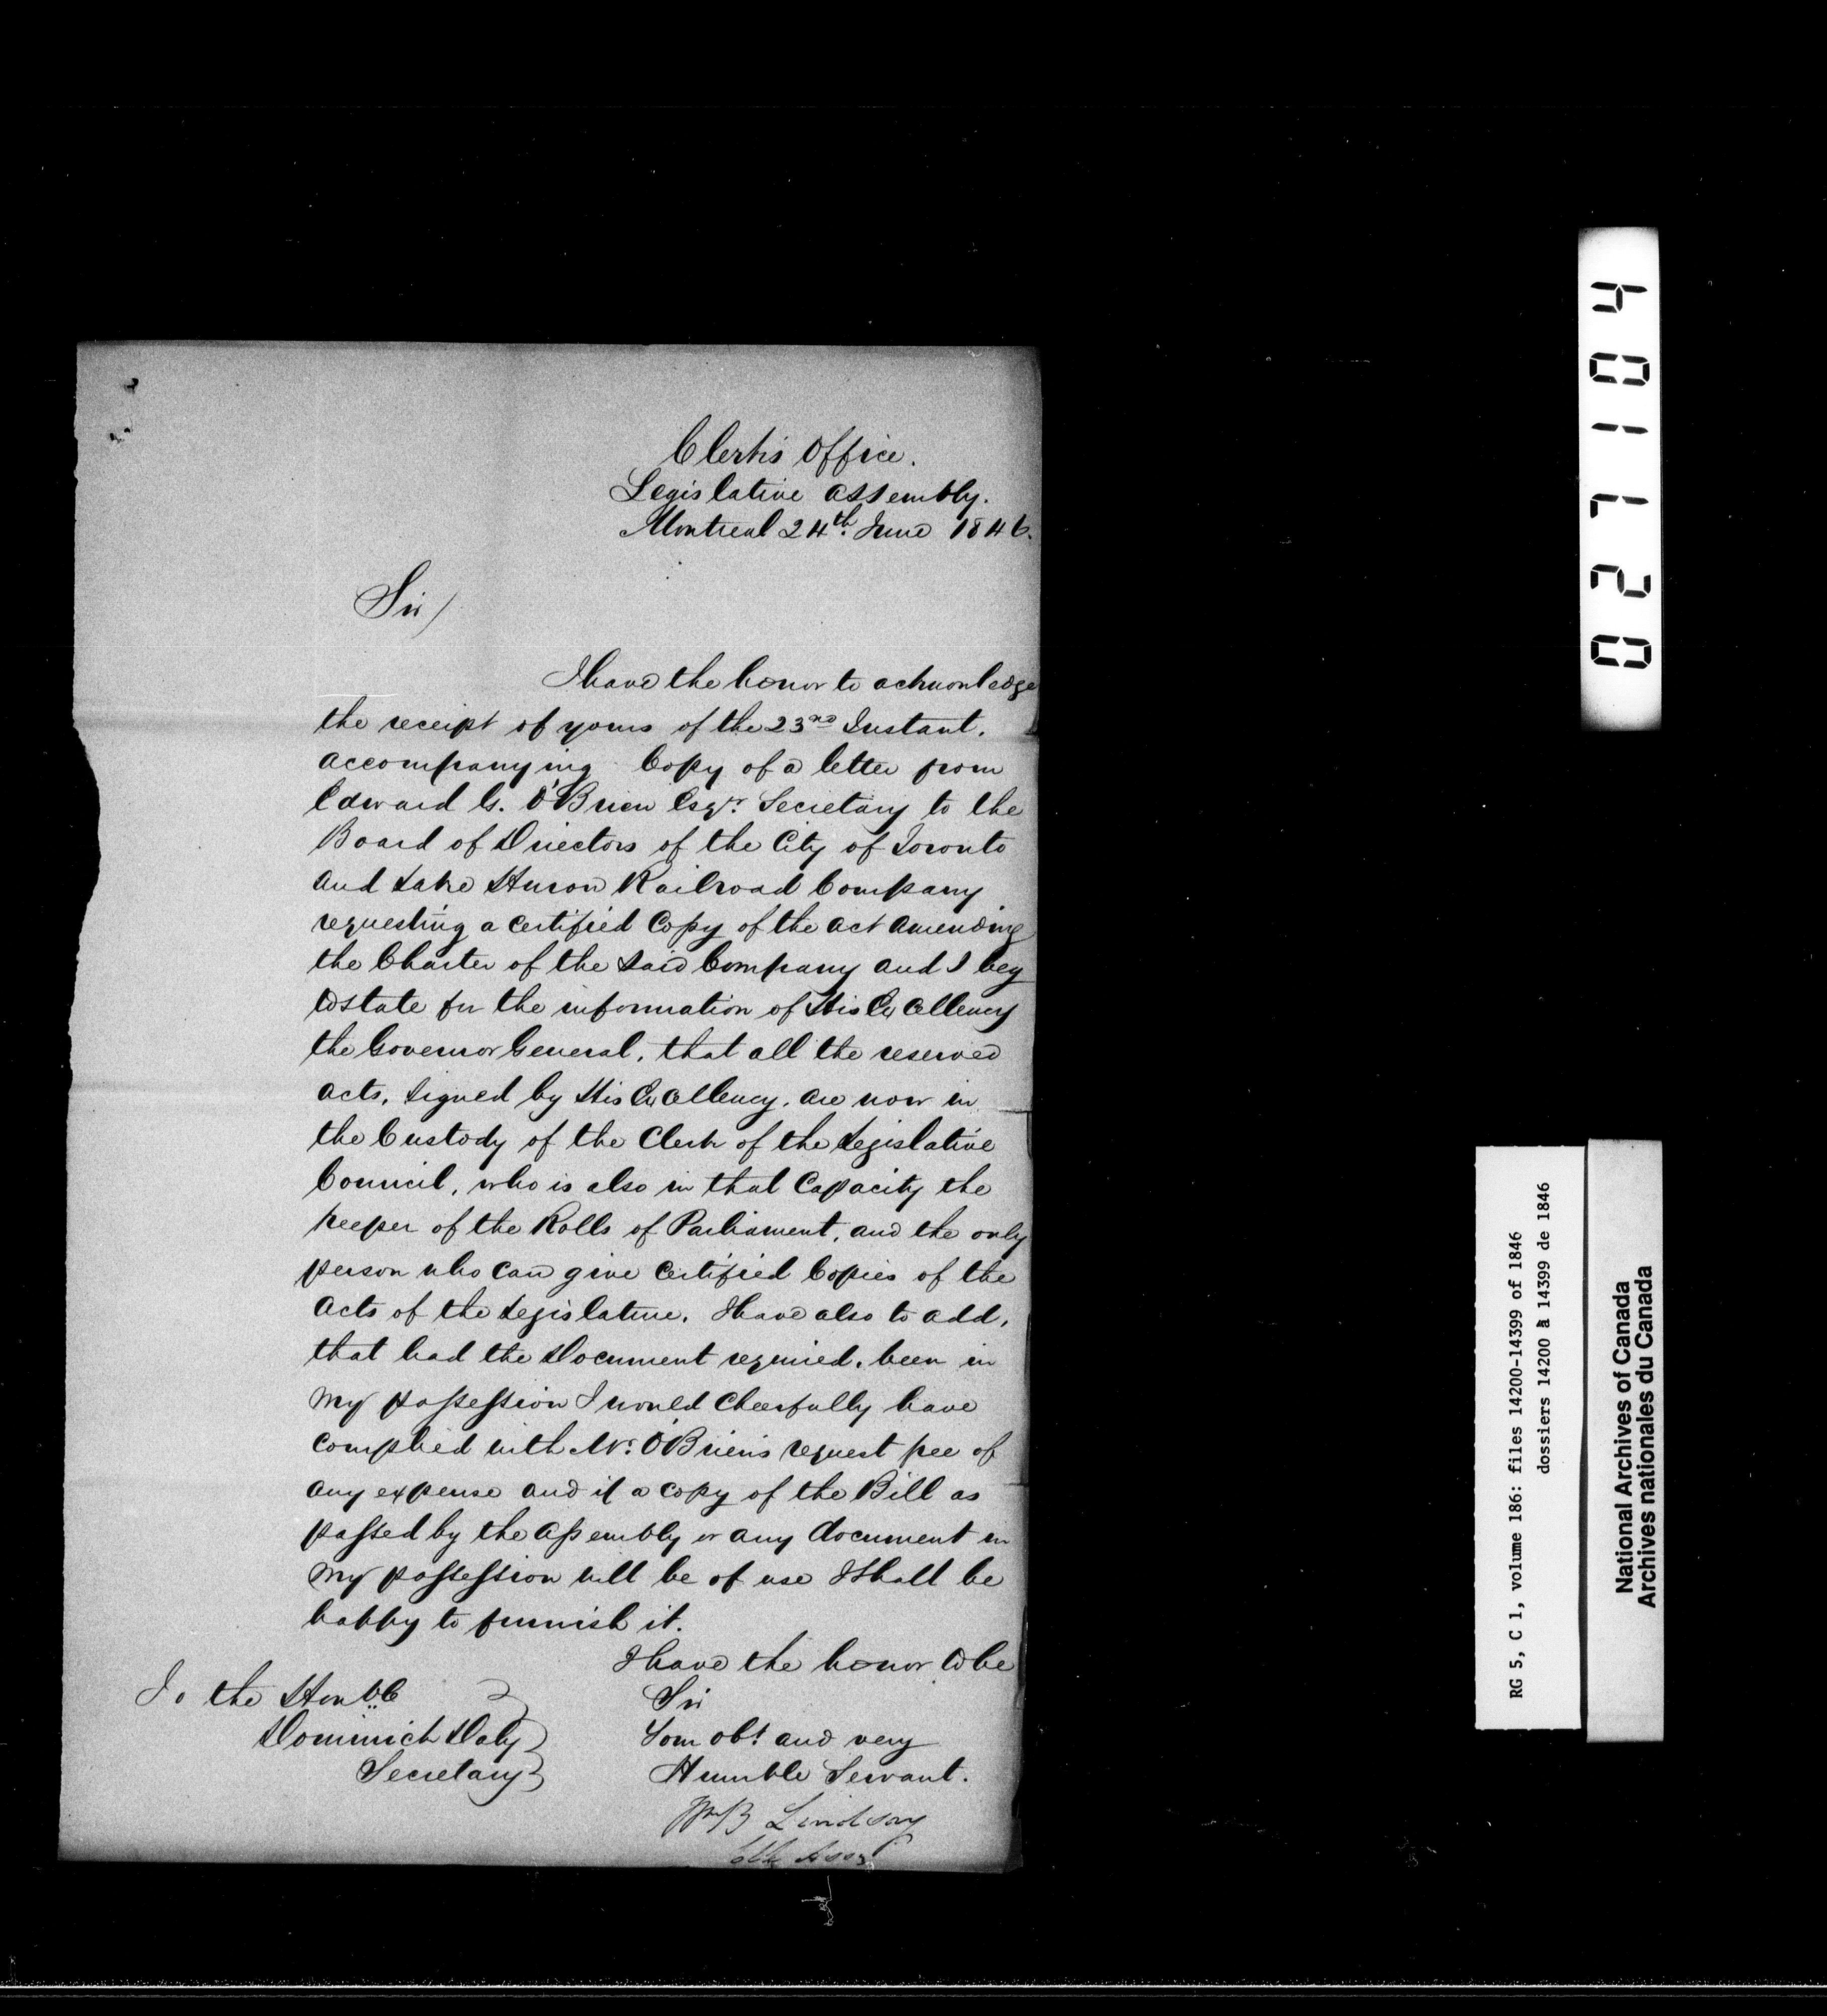 Clerk's Office.
Legislative Assembly.
Montreal 24th. June 1846.
Sir/
I have the honor to acknowledge
the receipt of yours of the 23rd Instant.
accompanying Copy of a letter from
Edward G. O'Brien Esqr. Secretary to the
Board of Directors of the City of Toronto
and Lake Huron Railroad Company
requesting a certified Copy of the act amending
the Charter of the said Company and I beg
to state for the information of His Excellency
the Governor General, that all the reserved
acts, signed by His Excellency, are now in
the Custody of the Clerk of the Legislative
Council, who is also in that Capacity the
keeper of the Rolls of Parliament, and the only
person who can give Certified Copies of the
Acts of the Legislature. I have also to add,
that had the Document required, been in
my possession I would cheerfully have
complied with Mr. O'Brien's request free of
any expense and if a copy of the Bill as
passed by the Assembly or any document in
my possession will be of use I shall be
happy to furnish it.
I have the honor to be
Sir
Your obt. and very
Humble Servant.
Wm B Lindsay
Clk Assy
To the Honble
Dominick Daly
Secretary
401720
RG 5, C 1, volume 186: files 14200-14399 of 1846
dossiers 14200 à 14399 de 1846
National Archives of Canada
Archives nationales du Canada